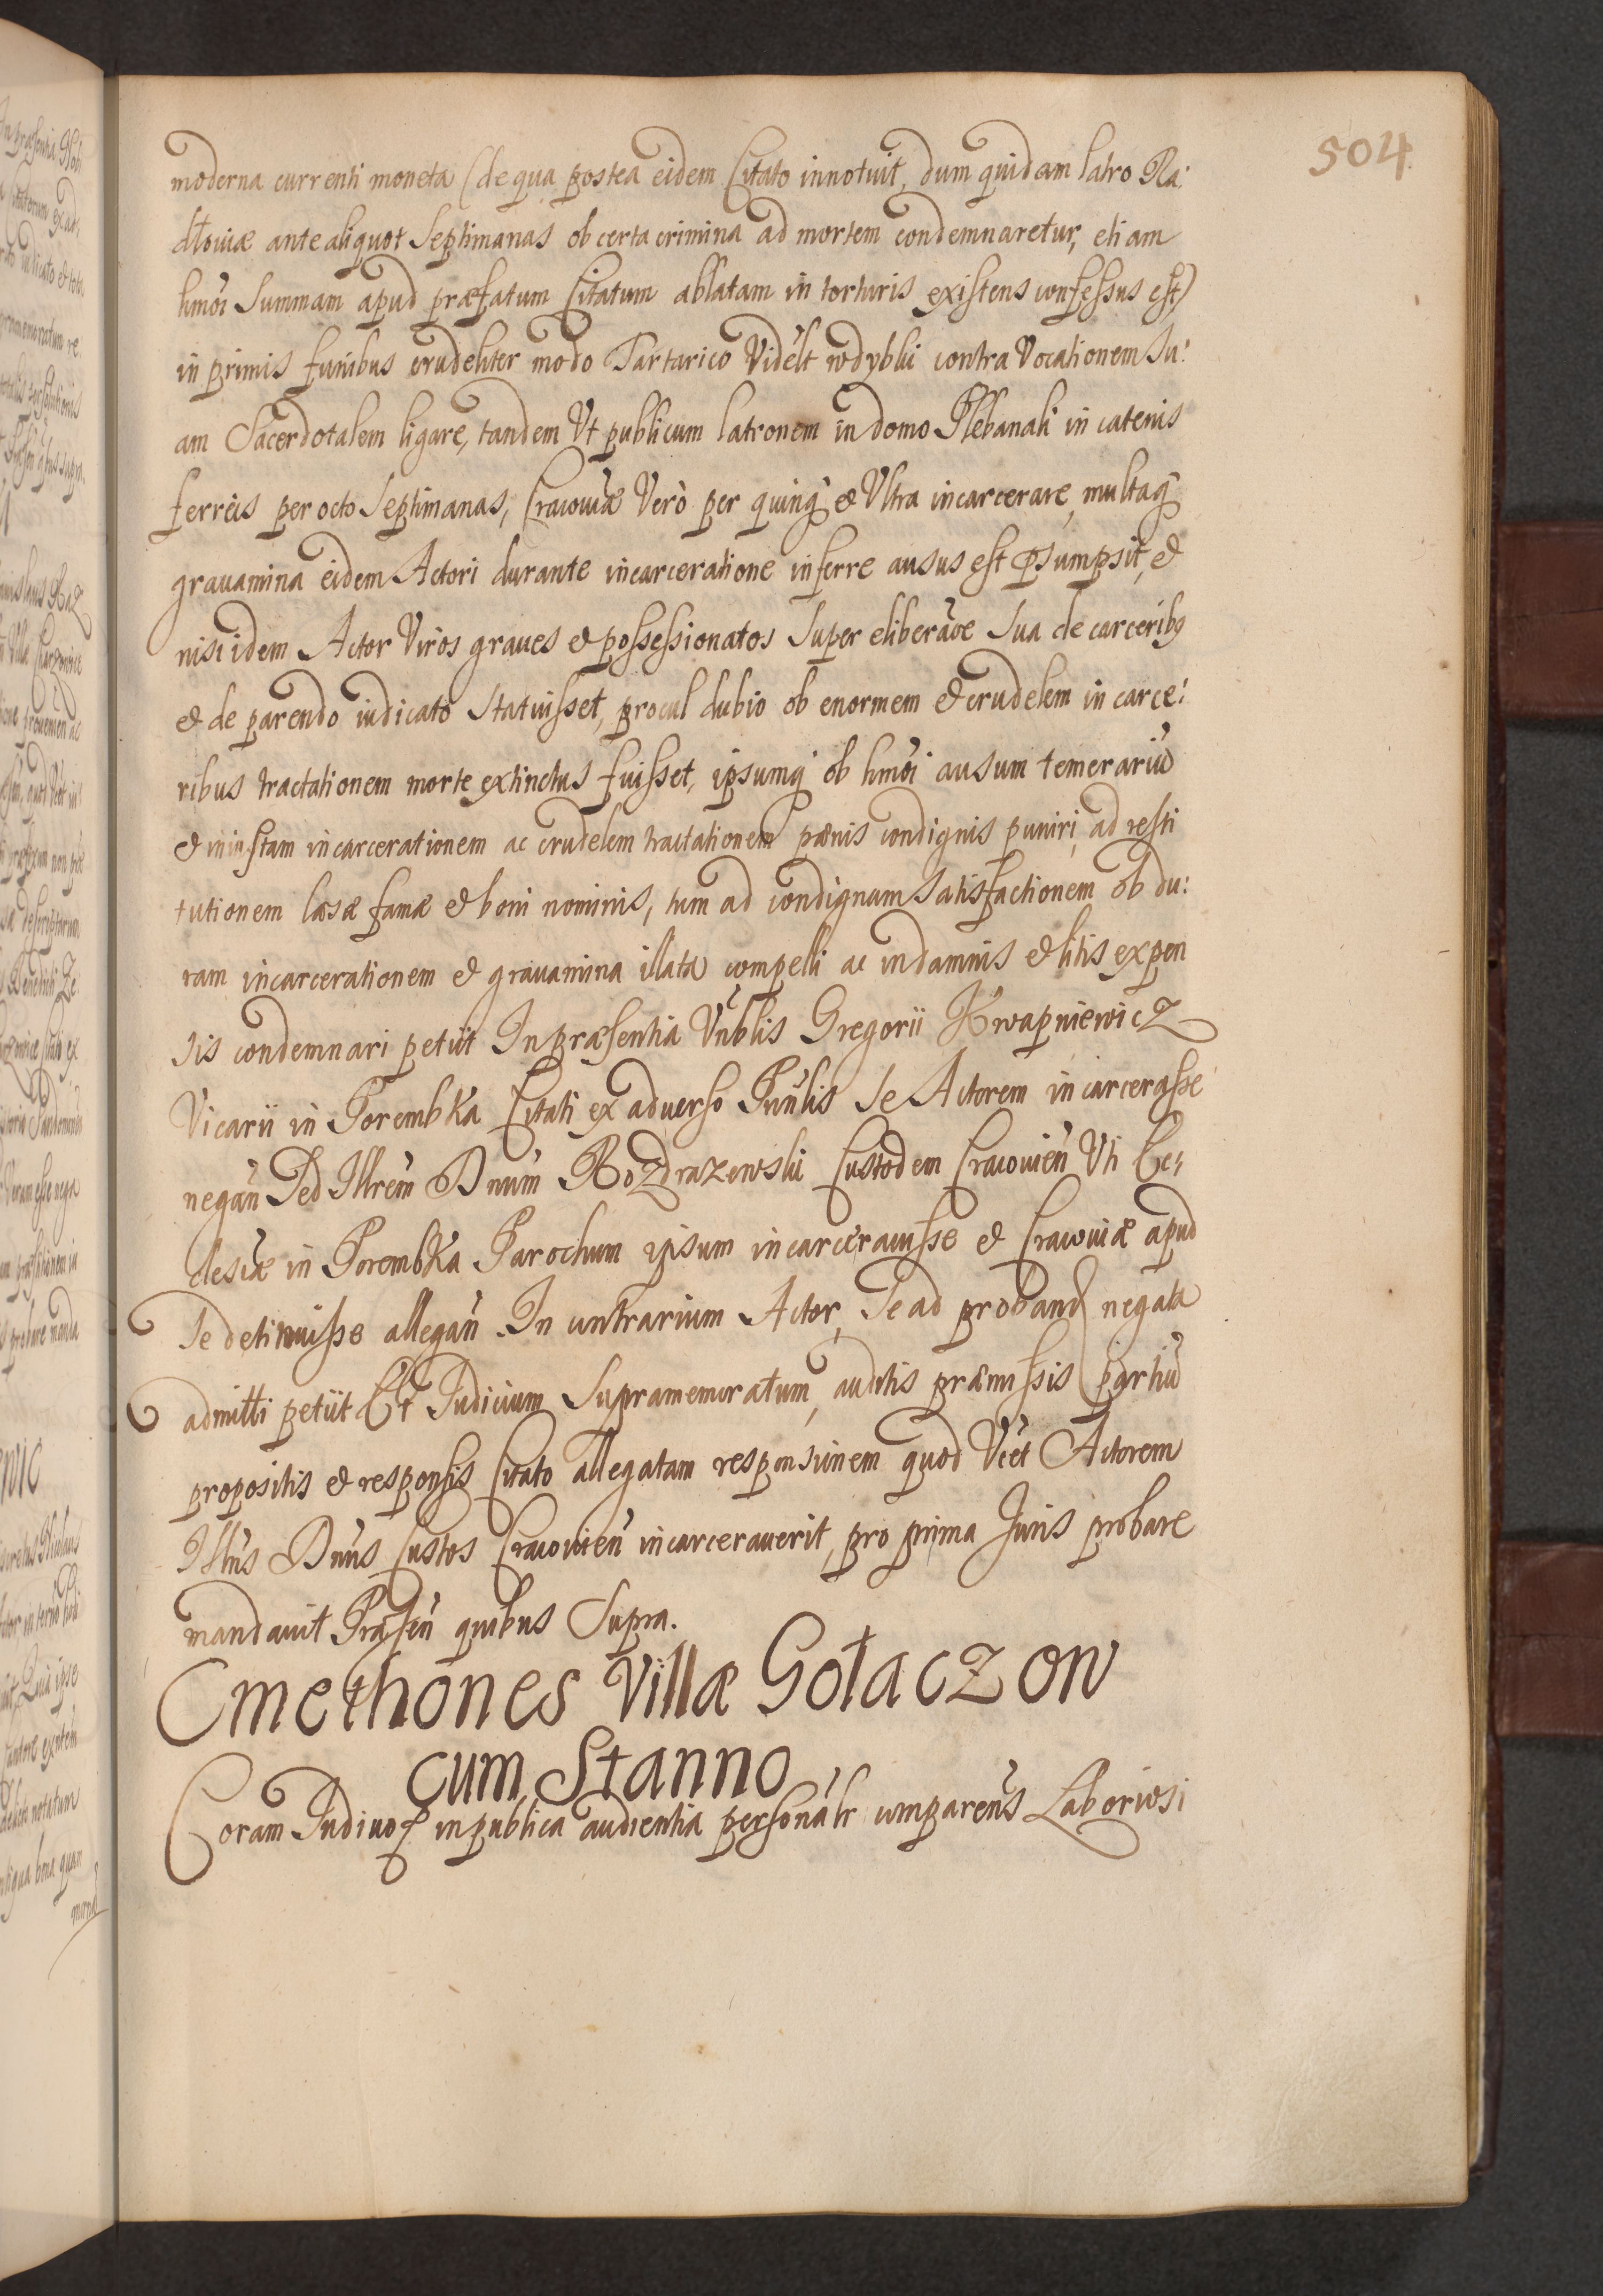 504.
moderna currenti moneta (de qua postea eidem Citato innotuit, dum quidam latro Ra:
dłouiæ ante aliquot Septimanas ob certa crimina ad mortem condemnaretur, etiam
hmõi Summam apud præfatum Citatum ablatam in torturis existens confessus est)
in primis funibus crudeliter modo Tartarico Videlt wdybki contra Vocationem Su:
am Sacerdotalem ligare, tandem Vt publicum latronem in domo Plebanali in catenis
ferreis per octo Septimanas, Cracouiæ Verò per quinq et Vltra incarcerare, multaq
grauamina eidem Actori durante incarceratione inferre ausus est psumpsit, et
nisi idem Actor Viros graues et possessionatos Super eliberãoe Sua de carceribq
et de parendo iudicato Statuisset, procul dubio ob enormem et crudelem in carce:
ribus tractationem morte extinctus fuisset, ipsumq ob hmõi ausum temerariũ
et iniustam incarcerationem ac crudelem tractationem pænis condignis puniri, ad resti
tutionem læsæ famæ et boni nominis, tum ad condignam Satisfactionem ob du:
ram incarcerationem et grauamina illata compelli ac in damnis et litis expen
sis condemnari petijt In præsentia Vnblis Gregorii Kwapniewicz
Vicarii in Porembka Citati ex aduerso Punlis Se Actorem incarcerasse
negañ Sed Illrem Dnum Rozdrazewski Custodem Cracouieñ Vti Ec:
clesiæ in Porembka Parochum ipsum incarcerauisse et Cracouiæ apud
Se detinuisse allegañ In contrarium Actor, Se ad proband negata
admitti petijt Et Iudicium Supramemoratum, auditis præmissis partiũ
propositis et responsis Citato allegatam responsionem quod Vcet Actorem
Illris Dnus Custos Cracouieñ incarcerauerit, pro prima Iuris probare
mandauit Præseñ quibus Supra.
Cmethones Villæ Gołaczow
cum Stanno
Coram Iudicio in publica audientia personalr comparens Laboriosi